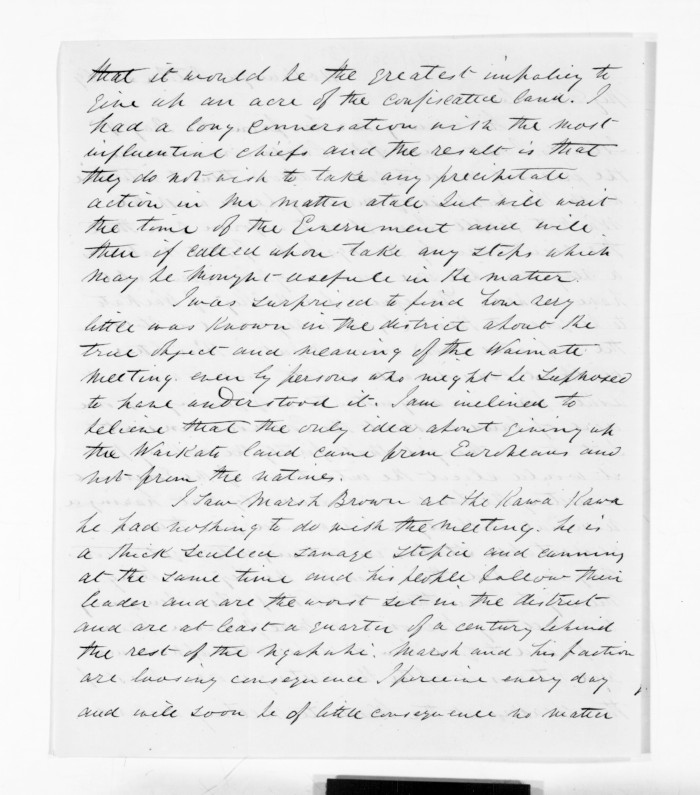 that it would be the greatest impolicy to
give up an acre of the confiscated land. I
had a long conversation with the most
influential chiefs and the result is that
they do not wish to take any precipitate
action in the matter atall but will wait
the time of the Government and will
then if called upon take any steps which
may be thought usefull in the matter.
I was surprised to find how very
little was known in the district about the
true object and meaning of the Waimate
meeting. even by persons who might be supposed
to have understood it. I am inclined to
believe that the only idea about giving up
the Waikato land came from Europeans and
not from the natives.
I saw Marsh Brown at the Kawa Kawa
he had nothing to do with the meeting. he is
a thick sculled savage stupid and cunning
at the same time and his people follow their
leader and are the worst set in the district
and are at least a quarter of a century behind
the rest of the Ngapuhi. Marsh and his faction
are loosing consequence I perceive every day
and will soon be of little consequence no matter